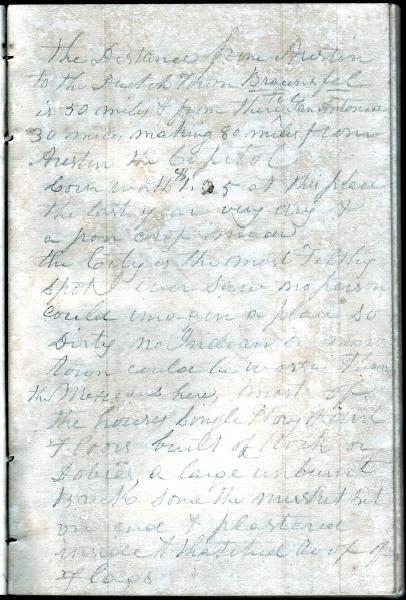 the Distances from Austin
to the Dutch Town Braunsfel
is 50 miles & from there to San Antonio
30 miles making 80 miles from
Austin the Capitol
Corn worth $1.25 at this place
the last year very dry &
a poor crop made
the City is the most Filthy
spot I ever saw no person
could imagin a place so
Dirty no Indian or
town could be worse than
the Mexicans here, most of
the houses Single Story
Floors built of Rock or
Dobies, a large unburnt
Brick some the muskit set
on end & plastered
inside & thatched Roof of
Flags